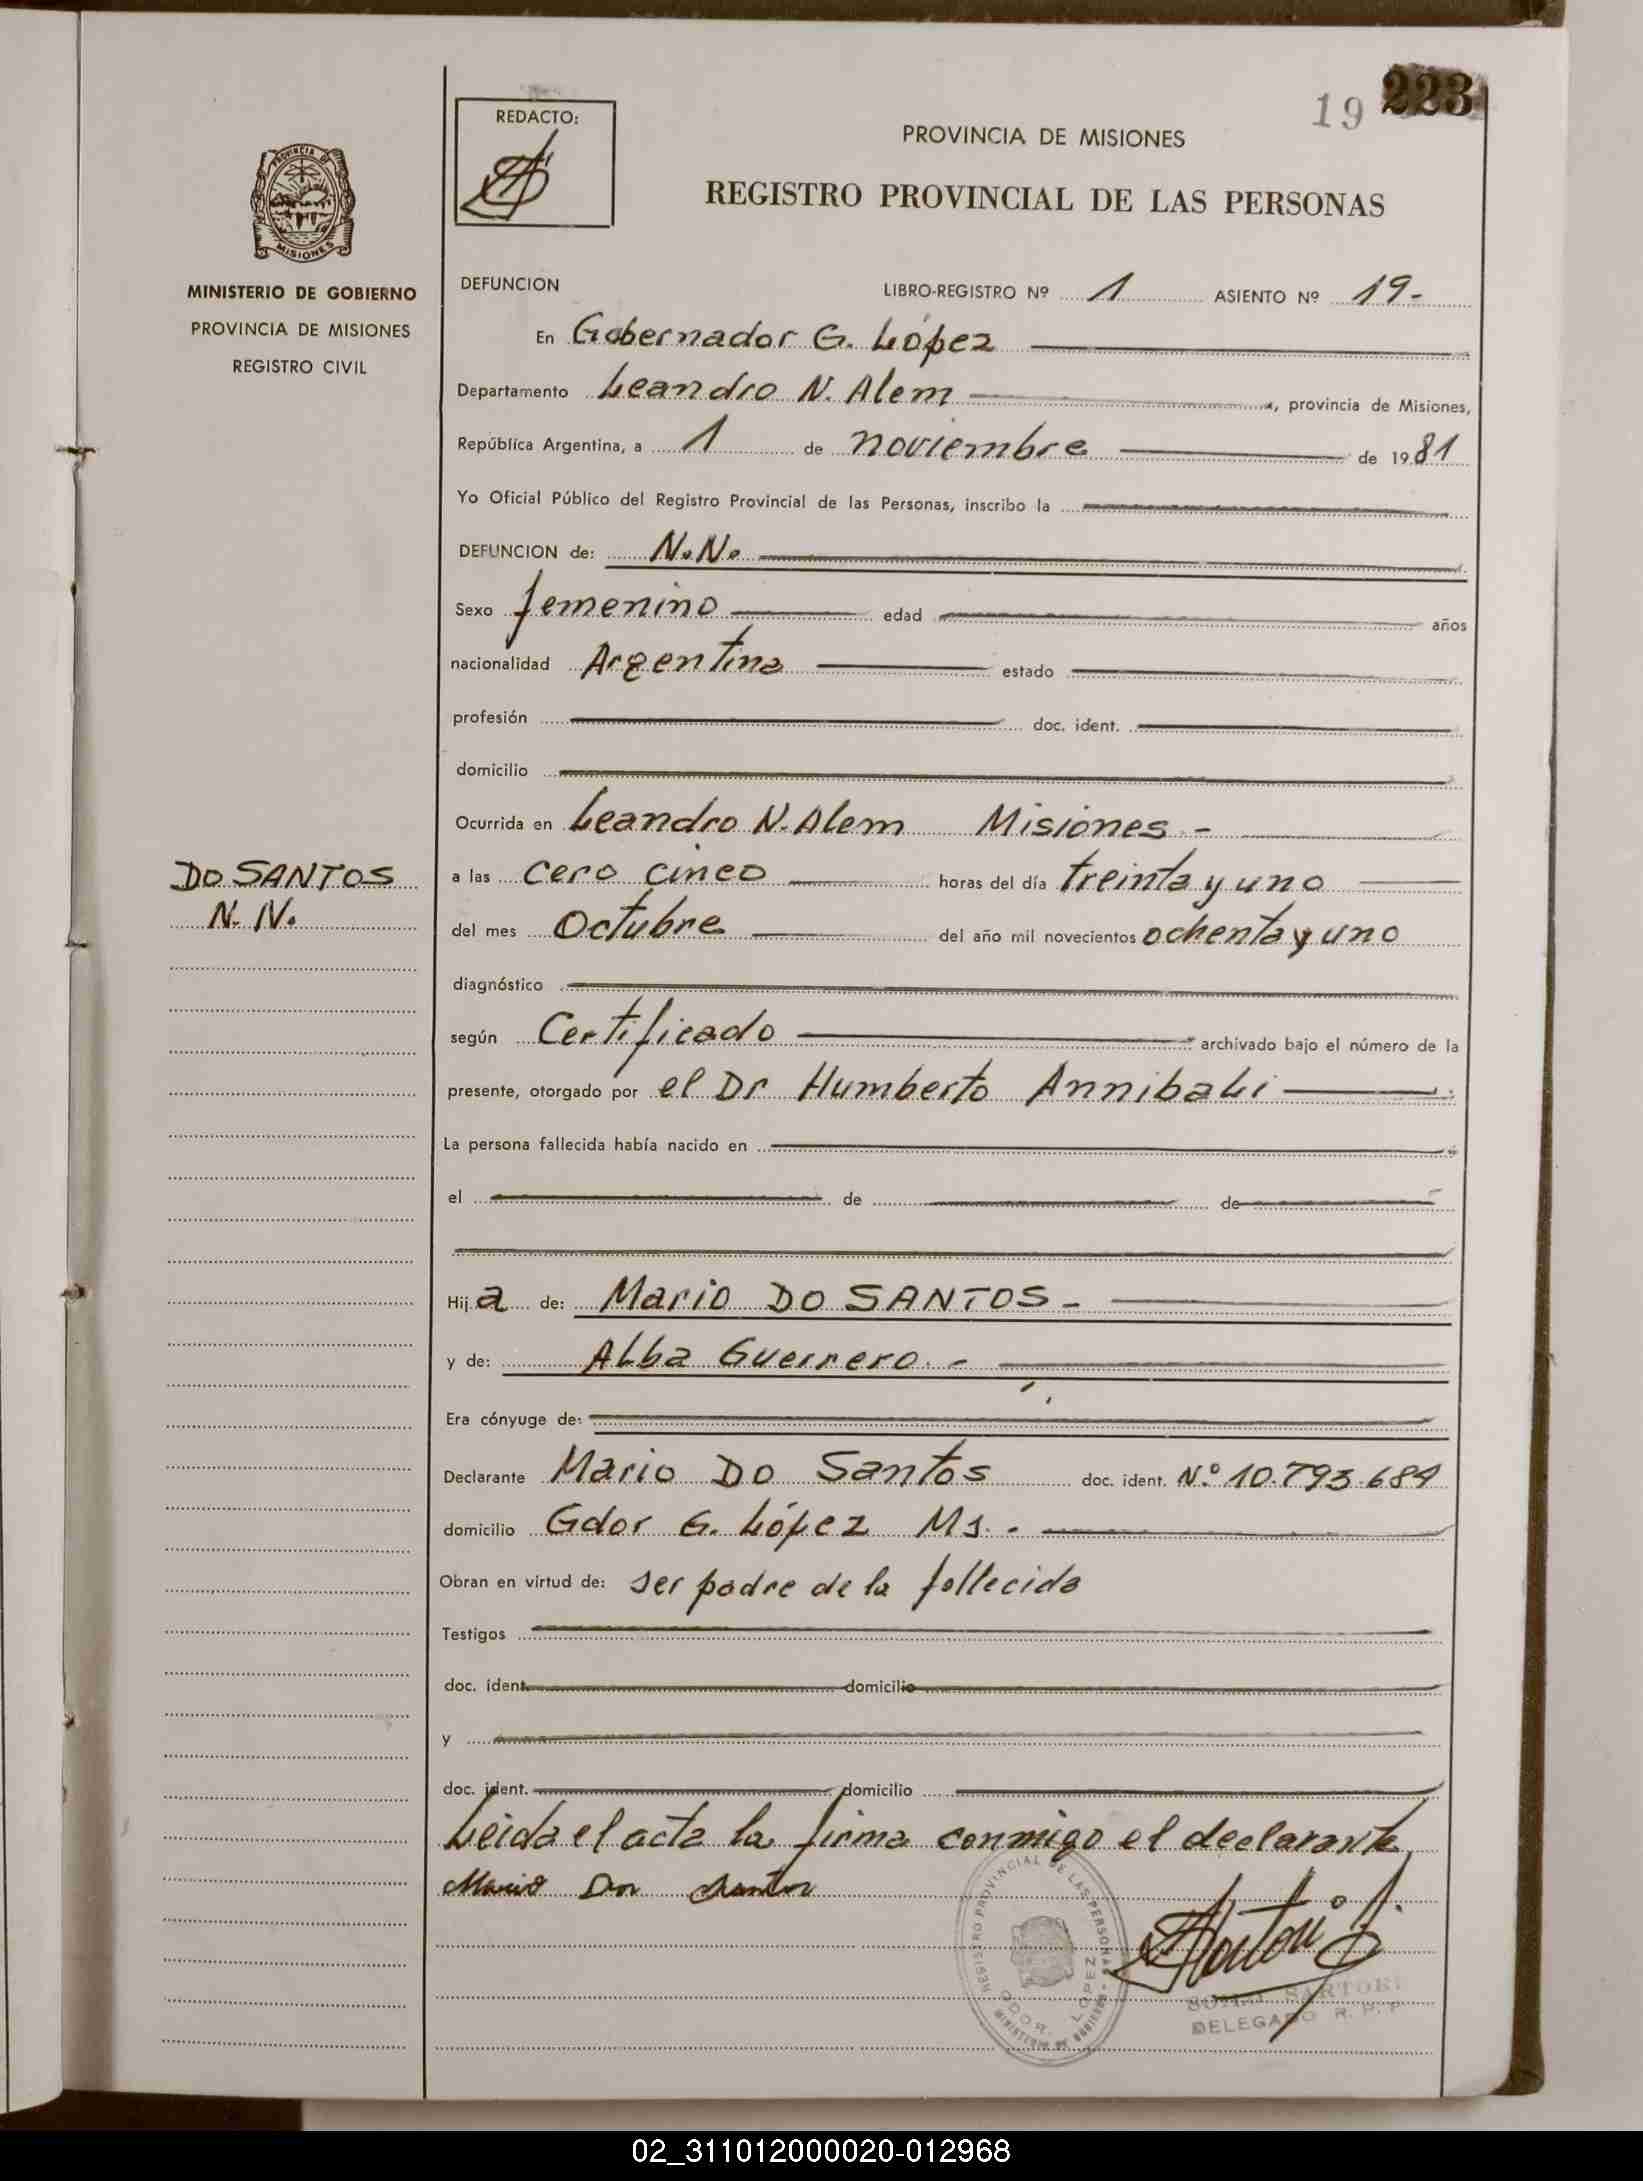 19 223
REDACTO:
PROVINCIA DE MISIONES
REGISTRO PROVINCIAL DE LAS PERSONAS
PROVINCIA DE
MISIONES
MINISTERIO DE GOBIERNO
PROVINCIA DE MISIONES
REGISTRO CIVIL
DEFUNCION LIBRO-REGISTRO Nº 1 ASIENTO Nº 19.-
En Gobernador G. López
Departamento Leandro N. Alem, provincia de Misiones,
República Argentina, a 1 de noviembre de 1981
Yo Oficial Público del Registro Provincial de las Personas, inscribo la
DEFUNCION de: N.N.
Sexo femenino edad años
nacionalidad Argentina estado
profesión doc. ident.
domicilio
Ocurrida en Leandro N. Alem Misiones.-
DO SANTOS
N. N.
a las cero cinco horas del día treinta y uno
del mes Octubre del año mil novecientos ochenta y uno
diagnóstico
según Certificado archivado bajo el número de la
presente, otorgado por el Dr Humberto Annibali
La persona fallecida había nacido en
el de de
Hija de: Mario DO SANTOS.-
y de: Alba Guerrero.-
Era cónyuge de:
Declarante Mario Do Santos doc. ident. N.º 10.793.684
domicilio Gdor G. López Ms.-
Obran en virtud de: ser padre de la fallecida
Testigos
doc. ident. domicilio
y
doc. ident. domicilio
Leida el acta la firma conmigo el declarante,
Mario Dos Santos
REGISTRO PROVINCIAL DE LAS PERSONAS
GDOR. LOPEZ
MINISTERIO DE GOBIERNO
SARTORI
DELEGADO R. P. P.
02_311012000020-012968